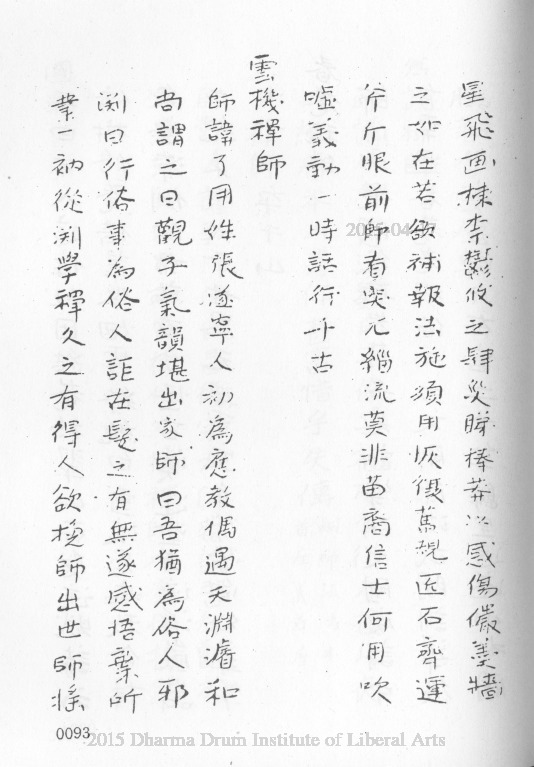 星飛画棟李鬱攸之肆災睇榛莽以感傷儼羹牆
之如在若欲補報法施須用恢復舊規匠石齊運
斧斤眼前即看突兀緇流莫非苗裔信士何用吹
噓義動一時語行千古
雲機禪師
師諱了用姓張遂寧人初為應教偶遇天淵濬和
尚謂之曰觀子氣韻堪出家師曰吾猶為俗人邪
渕曰行俗事為俗人詎在髮之有無遂感悟棄所
業一衲從渕學禪久之有得人欲挽師出世師搖
0093
2015 Dharma Drum Institute of Liberal Arts